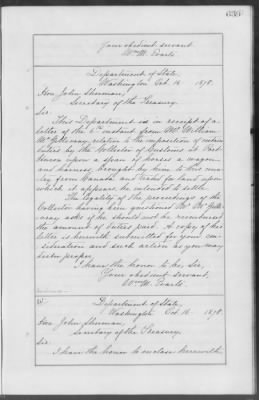 636
Your obedient servant
Wm M. Evarts
Department of State,
Washington Oct. 16 1878.
Hon John Sherman,
Secretary of the Treasury.
Sir:
This Department is in receipt of a
letter of the instant from Mr William
relation to the imposition of certain
duties by the Collector of Customs at Port
Huron upon a span of horses a wagon
and harness, brought by him to this coun-
try from Canada and used for land upon
which it appears he intended to settle.
The legality of the proceedings of the
Collector having been questioned Mr
asks if he should not be reimbursed
the amount of duties paid. A copy of his
letter is herewith submitted for your con-
sideration and such action as you may
deem proper.
I have the honor to be, Sir,
Your obedient servant,
Wm M. Evarts.
Department of State,
Washington Oct. 16 1878
Hon. John Sherman,
Secretary of the Treasury.
Sir:
I have the honor to enclose herewith